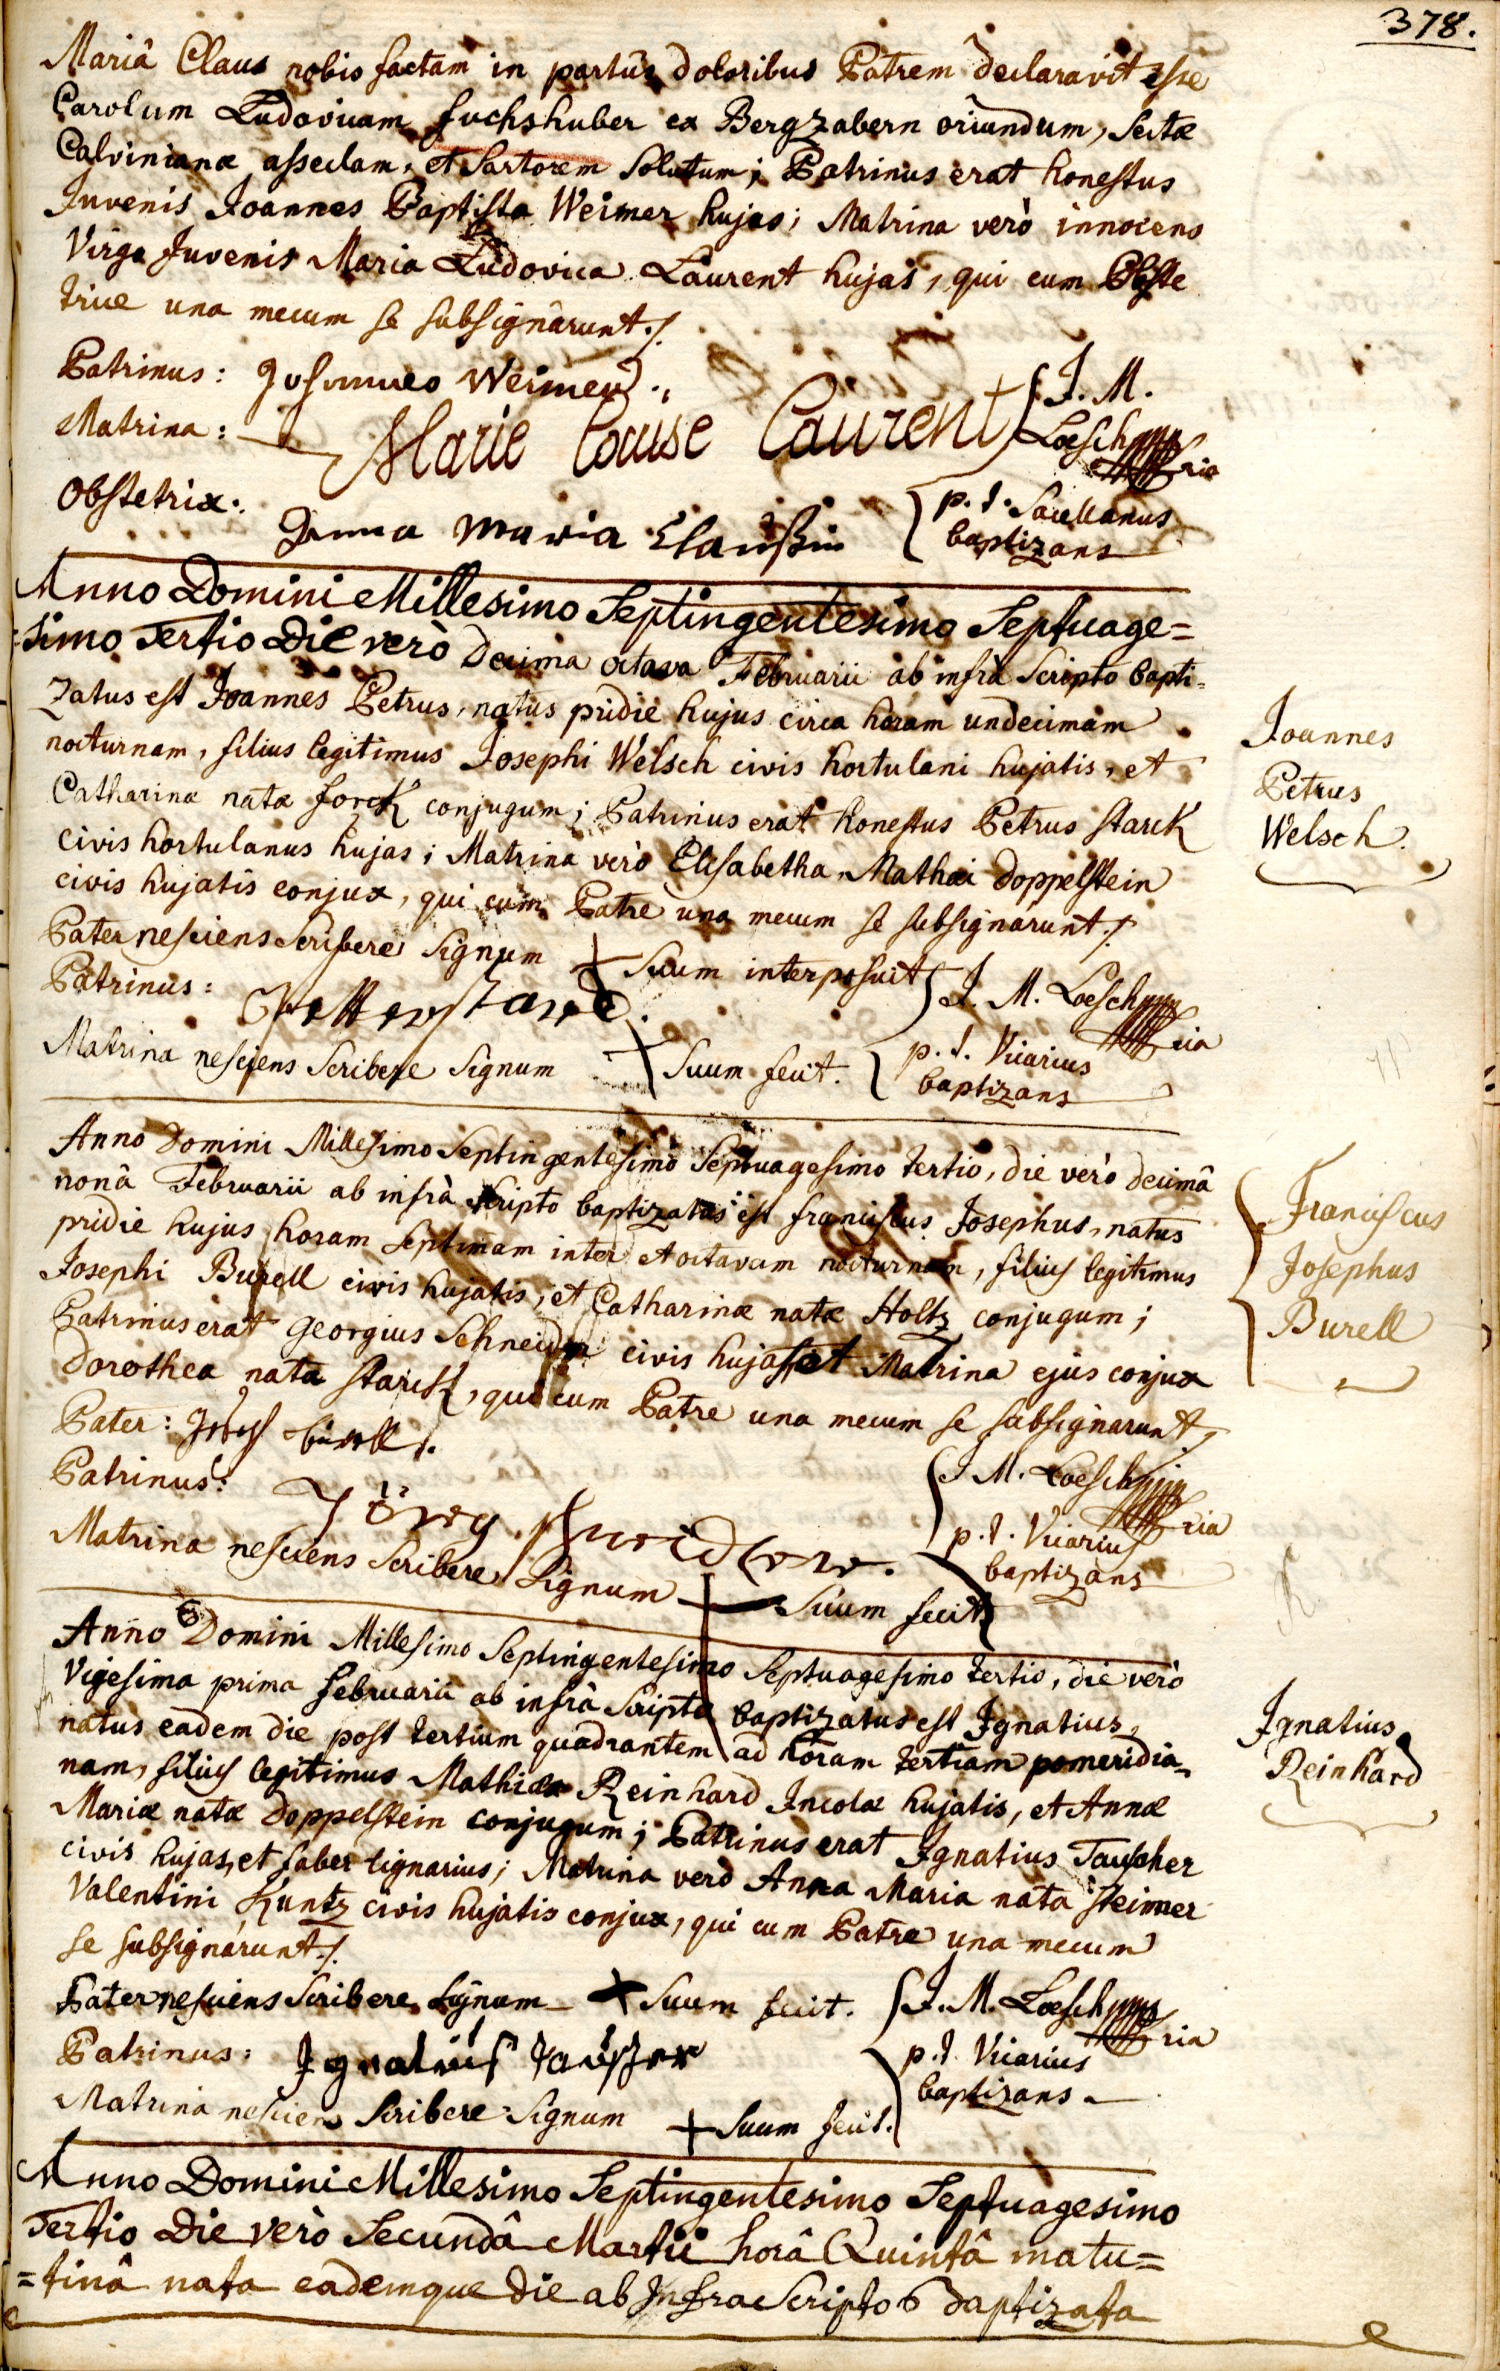 378.
Mariâ Claus nobis factam in partûs doloribus Patrem declaravit esse
Carolum Ludovicum fuchshuber ex Bergzabern oriundum, sectæ
Calvinianæ asseclam, et Sartorem Solutum; Patrinus erat honestus
Juvenis Joannes Baptista Weimer hujas; Matrina verò innocens
Virgo Juvenis Maria Ludovica Laurent hujas, qui cum Obste
trice una mecum se subsignârunt./.
Patrinus: Johannes Weimer.,
Matrina: Marie Louise Laurent
J. M.
Loesch
Obstetrix: Anna Maria Claußin
p. t. Sacellanus
baptizans
Anno Domini Millesimo Septingentesimo Septuage=
=simo Tertio Die verò Decima octava Februarii ab infrà Scripto bapti-
zatus est Joannes Petrus, natus pridie hujus circa horam undecimam
nocturnam, filius legitimus Josephi Welsch civis hortulani hujatis, et
Catharinæ natæ forck conjugum; Patrinus erat honestus Petrus Starck
civis hortulanus hujas; Matrina verò Elisabetha Mathæi Doppelstein
civis hujatis conjux, qui cum Patre una mecum se subsignarunt./.
Joannes
Petrus
Welsch.
Pater nesciens Scribere Signum + Suum interposuit
Patrinus:
J. M. Loesch
Matrina nesciens Scribere Signum + Suum fecit.
p. t. Vicarius
baptizans
Anno Domini Millesimo Septingentesimo Septuagesimo tertio, die verò decimâ
nonâ Februarii ab infrà Scripto baptizatus est franciscus Josephus, natus
pridie hujus horam Septimam inter et octavam nocturnam, filius legitimus
Josephi Burell civis hujatis, et Catharinæ natæ Holtz conjugum;
Patrinus erat Georgius Schneider civis hujas, et Matrina ejus conjux
Dorothea nata Starck, qui cum Patre una mecum se subsignarunt./.
Franciscus
Josephus
Burell
Pater: Josep burell.
Patrinus: Jörg Schneider.
J. M. Loesch
p. t. Vicarius
baptizans
Matrina nesciens Scribere Signum + Suum fecit
Anno Domini Millesimo Septingentesimo Septuagesimo tertio, die verò
Vigesima prima februarii ab infrà Scripto baptizatus est Ignatius,
natus eadem die post tertium quadrantem ad horam tertiam pomeridia-
nam, filius legitimus Mathiæ Reinhard Incolæ hujatis, et Annæ
Mariæ natæ Doppelstein conjugum; Patrinus erat Ignatius Tauscher
civis hujas, et faber lignarius; Matrina verò Anna Maria nata Steimer
Valentini Kuntz civis hujatis conjux, qui cum Patre una mecum
se subsignârunt./.
Ignatius
Reinhard
Pater nesciens Scribere Signum + Suum fecit.
J. M. Loesch
Patrinus: Ignatius
p. t. Vicarius
baptizans
Matrina nesciens Scribere Signum + Suum fecit.
Anno Domini Millesimo Septingentesimo Septuagesimo
Tertio Die verò Secundâ Martii horâ Quintâ matu=
=tinâ nata eademque die ab Infra Scripto baptizata